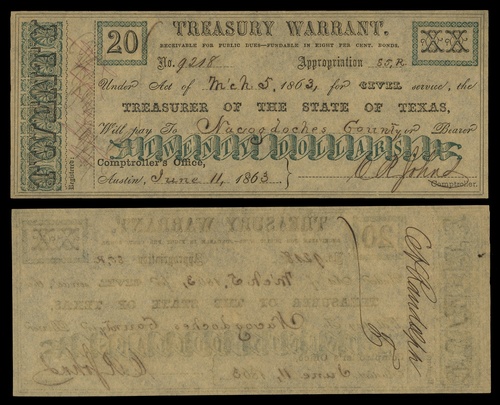 TREASURY WARRANT.
20
XX
RECEIVABLE FOR PUBLIC DUES—FUNDABLE IN EIGHT PER CENT. BONDS.
No. 9218 Appropriation 55,R.
Under Act of M'ch 5, 1863, for CIVIL service, the
TREASURER OF THE STATE OF TEXAS,
Will pay To Nacogdoches County or Bearer
TWENTY DOLLARS
Comptroller's Office,
Austin, June 11, 1863
C R Johns
Comptroller.
Registered
C H Randolph